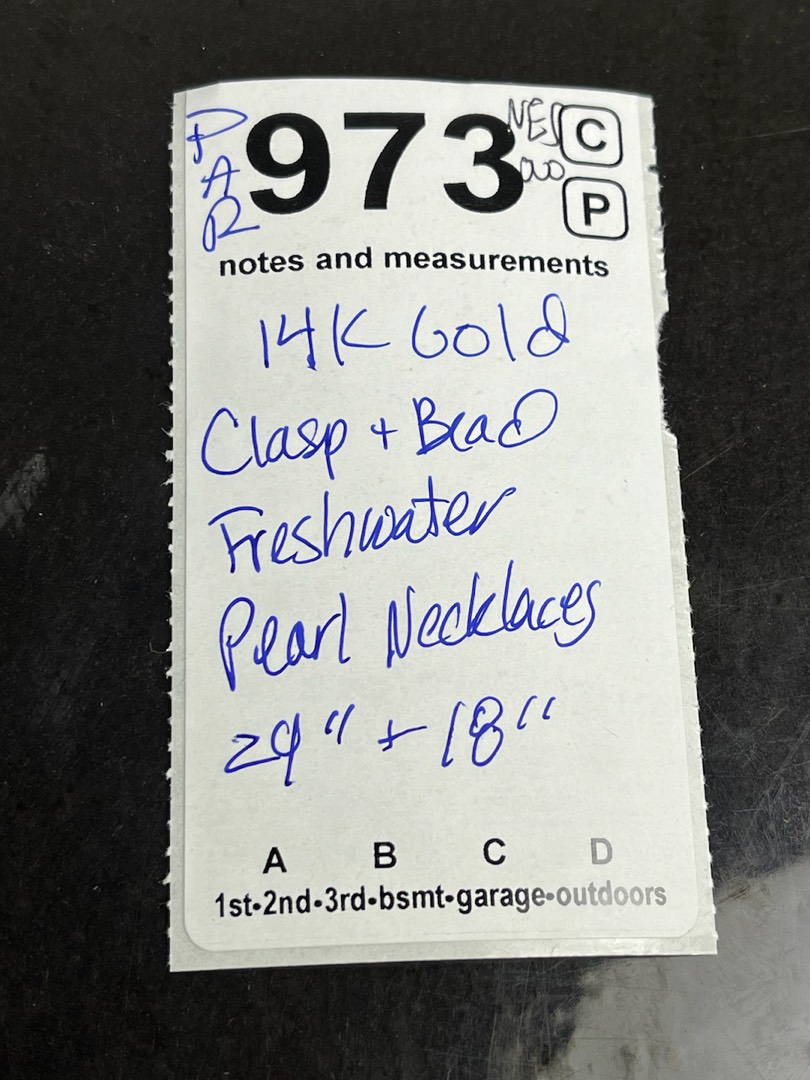 PAR
973
C
P
notes and measurements
14K Gold
Clasp + Bead
Freshwater
Pearl Necklaces
24" + 18"
A B C D
1st•2nd•3rd•bsmt•garage•outdoors